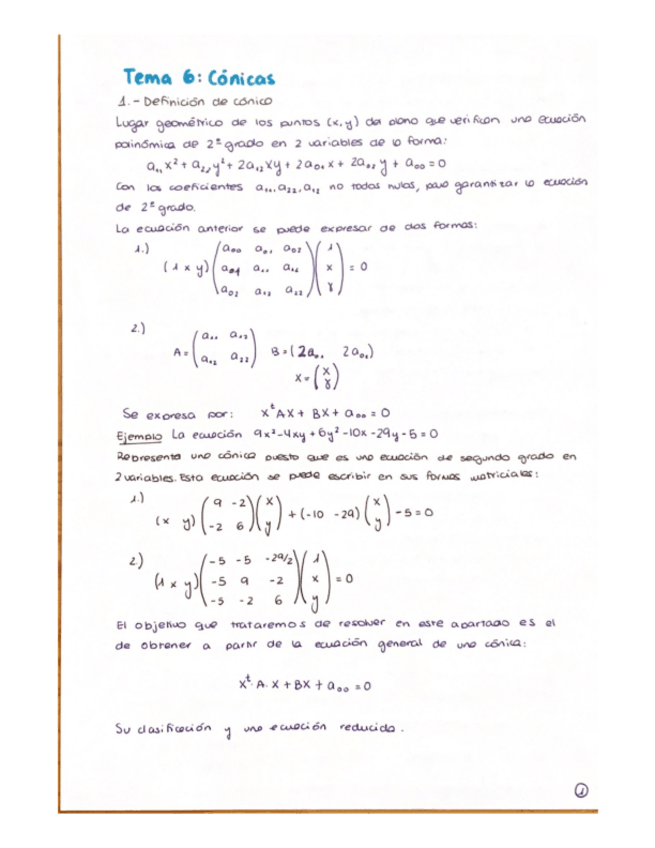 Tema 6: Cónicas
1.- Definición de cónica
Lugar geométrico de los puntos (x,y) del plano que verifican una ecuación
polinómica de 2º grado en 2 variables de la forma:
a₁₁x² + a₂₂y² + 2a₁₂xy + 2a₀₁x + 2a₀₂y + a₀₀ = 0
Con los coeficientes a₁₁, a₂₂, a₁₂ no todos nulos, para garantizar la ecuación
de 2º grado.
La ecuación anterior se puede expresar de dos formas:
1.)
(1 x y) (a₀₀ a₀₁ a₀₂ / a₀₁ a₁₁ a₁₂ / a₀₂ a₁₂ a₂₂) (1 / x / y) = 0
2.)
A = (a₁₁ a₁₂ / a₁₂ a₂₂) B = (2a₀₁ 2a₀₂)
X = (x / y)
Se expresa por: Xᵗ A X + BX + a₀₀ = 0
Ejemplo La ecuación 9x² - 4xy + 6y² - 10x - 29y - 5 = 0
Representa una cónica puesto que es una ecuación de segundo grado en
2 variables. Esta ecuación se puede escribir en sus formas matriciales:
1.)
(x y) (9 -2 / -2 6) (x / y) + (-10 -29) (x / y) - 5 = 0
2.)
(1 x y) (-5 -5 -29/2 / -5 9 -2 / -5 -2 6) (1 / x / y) = 0
El objetivo que trataremos de resolver en este apartado es el
de obtener a partir de la ecuación general de una cónica:
Xᵗ. A. X + BX + a₀₀ = 0
Su clasificación y una ecuación reducida.
1